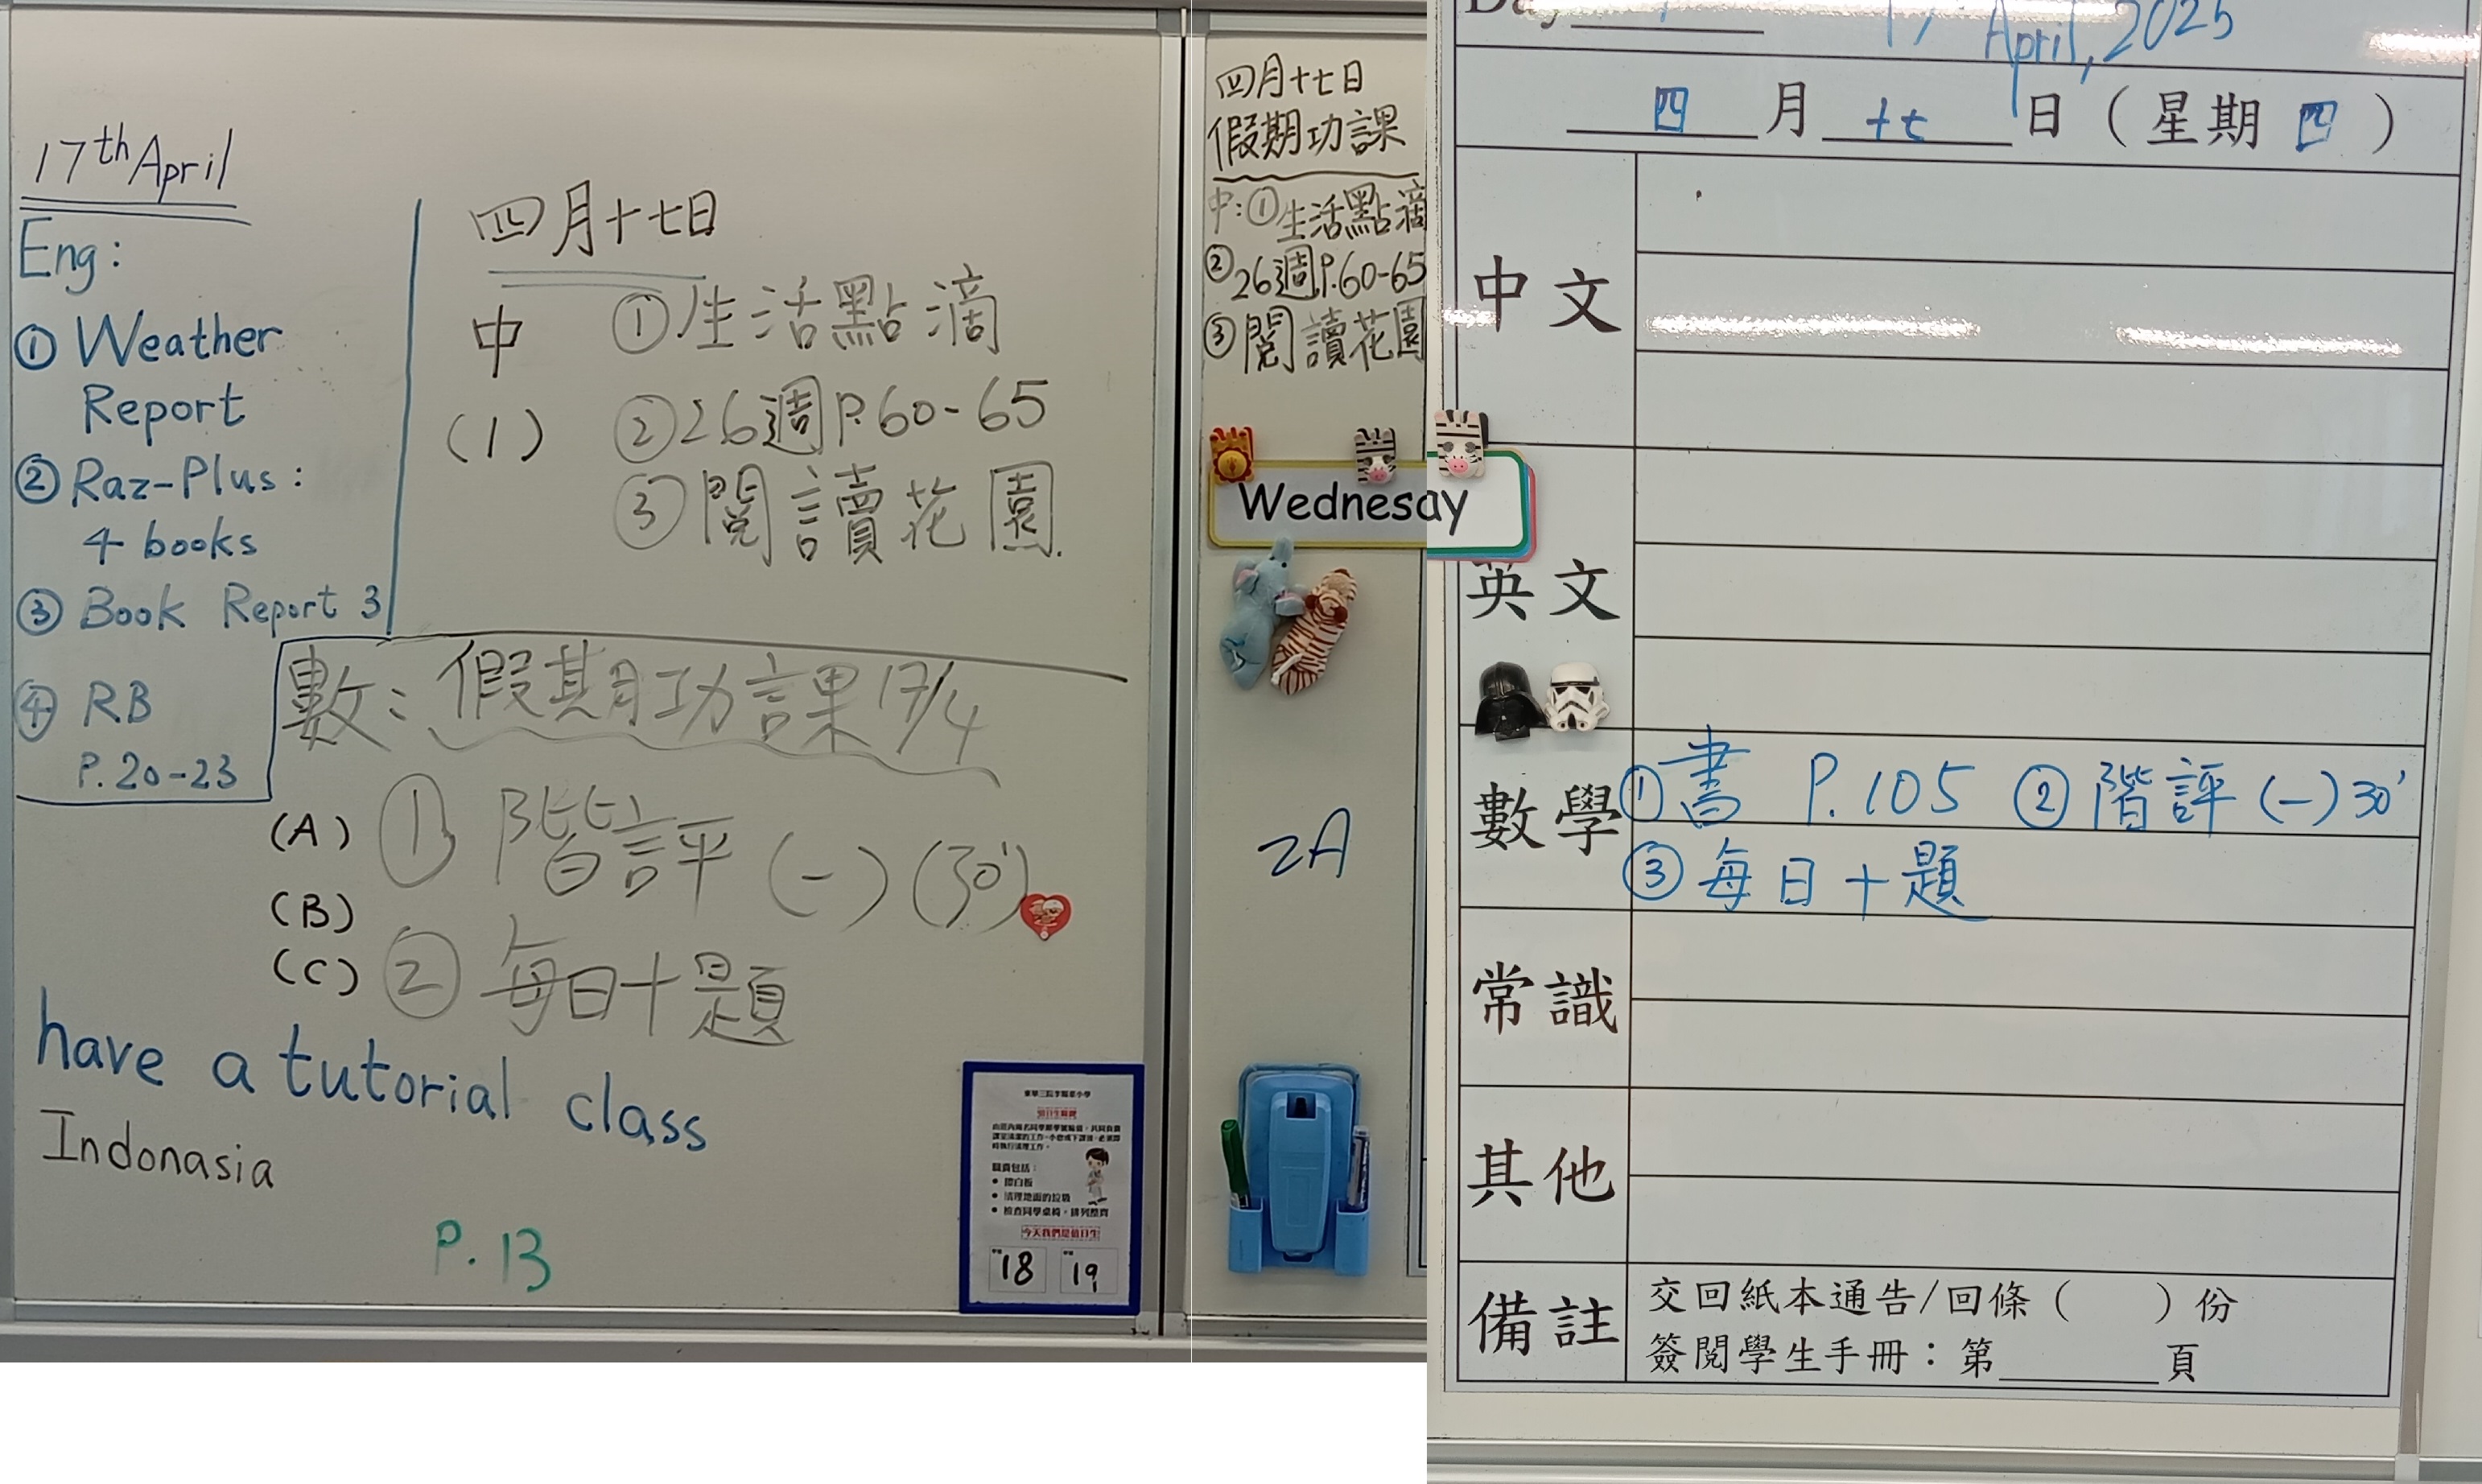 17th April
Eng:
① Weather
Report
② Raz-Plus:
4 books
③ Book Report 3
④ RB
P.20-23
四月十七日
中 ①生活點滴
(1) ②26週P.60-65
③閱讀花園
數：假期功課17/4
(A) ① 階評(一)(30')
(B)
(C) ② 每日十題
have a tutorial class
Indonasia
P.13
東華三院李賜豪小學
值日生職責
職責包括：
擦白板
清理地面的垃圾
檢查同學桌椅，排列整齊
今天我們是值日生
18 19
四月十七日
假期功課
中：①生活點滴
②26週P.60-65
③閱讀花園
Wednesay
2A
Day 17 April, 2025
四月十七日（星期四）
中文
英文
數學 ①書 P.105 ②階評(一)30'
③每日十題
常識
其他
備註 交回紙本通告/回條（ ）份
簽閱學生手冊：第 頁